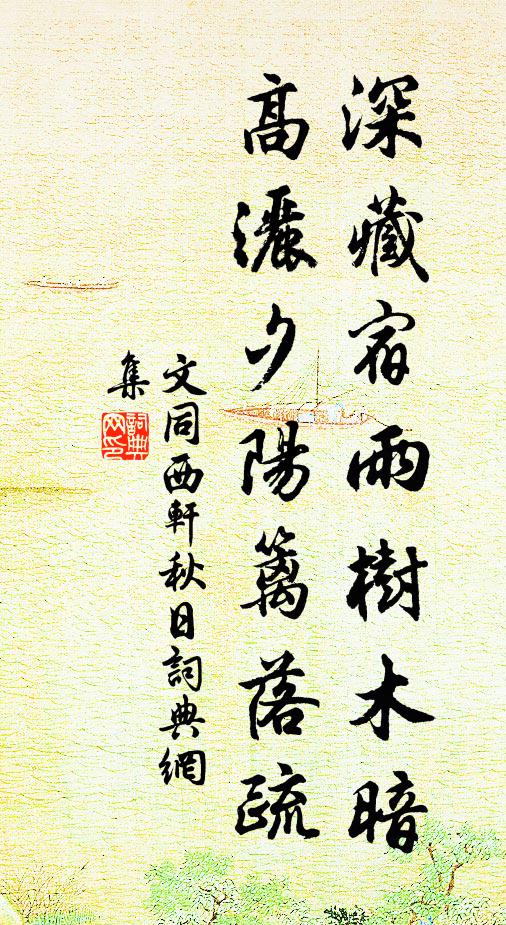 深藏宿雨樹木暗
高灑夕陽籬落疏
文同西軒秋日詞典網
集
詞典網印